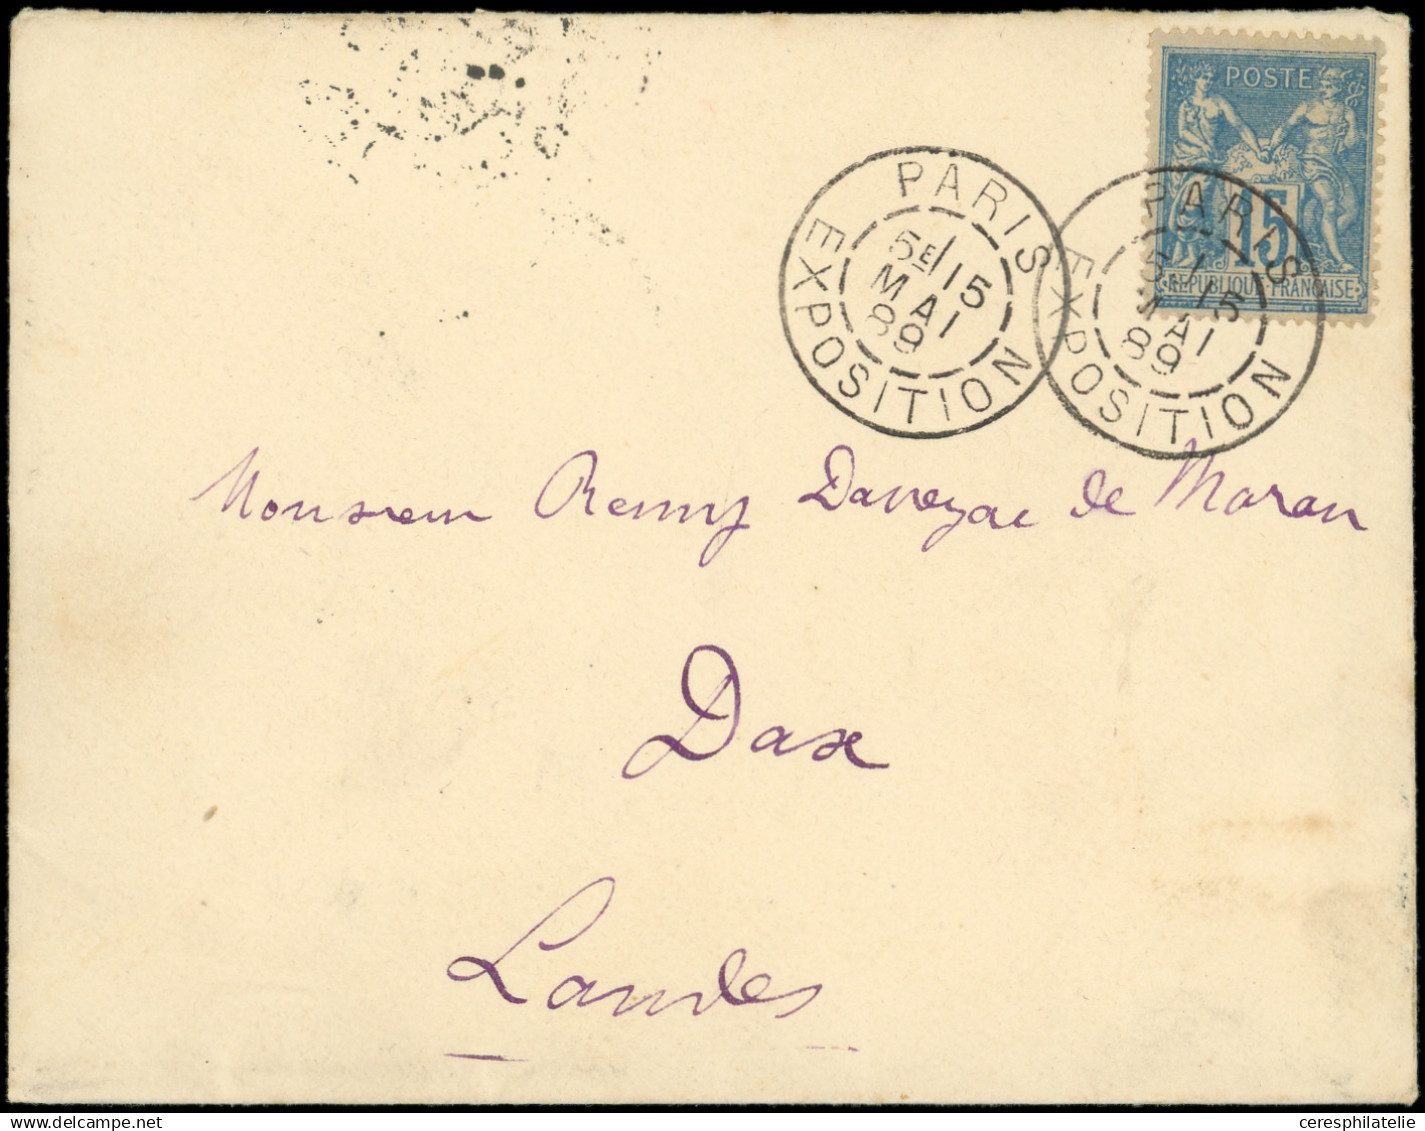 POSTE
15
REPUBLIQUE FRANCAISE
PARIS
5E/15
MAI
89
EXPOSITION
PARIS
5 / 15
MAI
89
EXPOSITION
Monsieur Remy Daveyac de Maran
Dax
Landes
ceresphilatelie